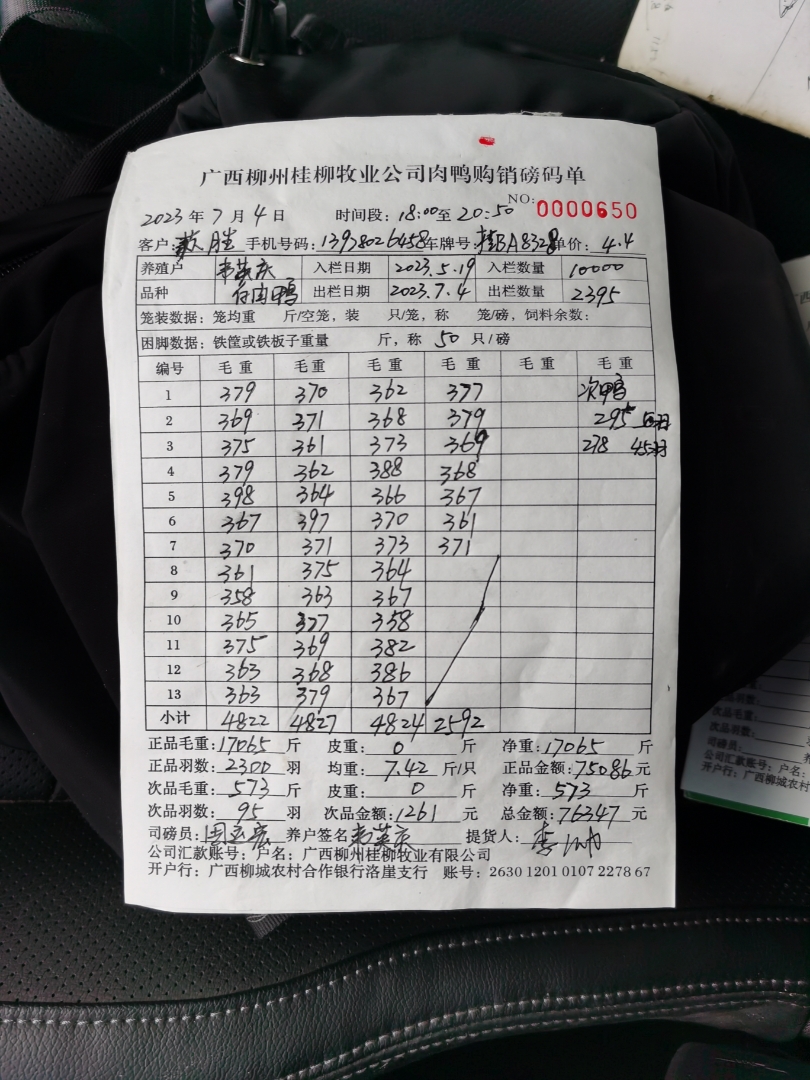 广西柳州桂柳牧业公司肉鸭购销磅码单
NO: 0000650
2023年7月4日 时间段: 18:00至20:50
客户: 苏胜 手机号码: 13978026458 车牌号: 桂BA8328 单价: 4.4
养殖户 韦英庆 入栏日期 2023.5.19 入栏数量 10000
品种 白肉鸭 出栏日期 2023.7.4 出栏数量 2395
笼装数据: 笼均重 斤/空笼, 装 只/笼, 称 笼/磅, 饲料余数:
困脚数据: 铁筐或铁板子重量 斤, 称 50 只/磅
编号 毛重 毛重 毛重 毛重 毛重 毛重
1 379 370 362 377 次鸭
2 369 371 368 379 295 50羽
3 375 361 373 369 278 45羽
4 379 362 388 368
5 398 364 366 367
6 367 397 370 361
7 370 371 373 371
8 361 375 364
9 358 363 367
10 365 377 358
11 375 369 382
12 363 368 386
13 363 379 367
小计 4822 4827 4824 2592
正品毛重: 17065 斤 皮重: 0 斤 净重: 17065 斤
正品羽数: 2300 羽 均重: 7.42 斤/只 正品金额: 75086 元
次品毛重: 573 斤 皮重: 0 斤 净重: 573 斤
次品羽数: 95 羽 次品金额: 1261 元 总金额: 76347 元
司磅员: 养户签名 韦英庆 提货人: 李
公司汇款账号: 户名: 广西柳州桂柳牧业有限公司
开户行: 广西柳城农村合作银行洛崖支行 账号: 2630 1201 0107 2278 67
次品毛重:
次品羽数:
司磅员:
公司汇款账号: 户名:
开户行: 广西柳城农村